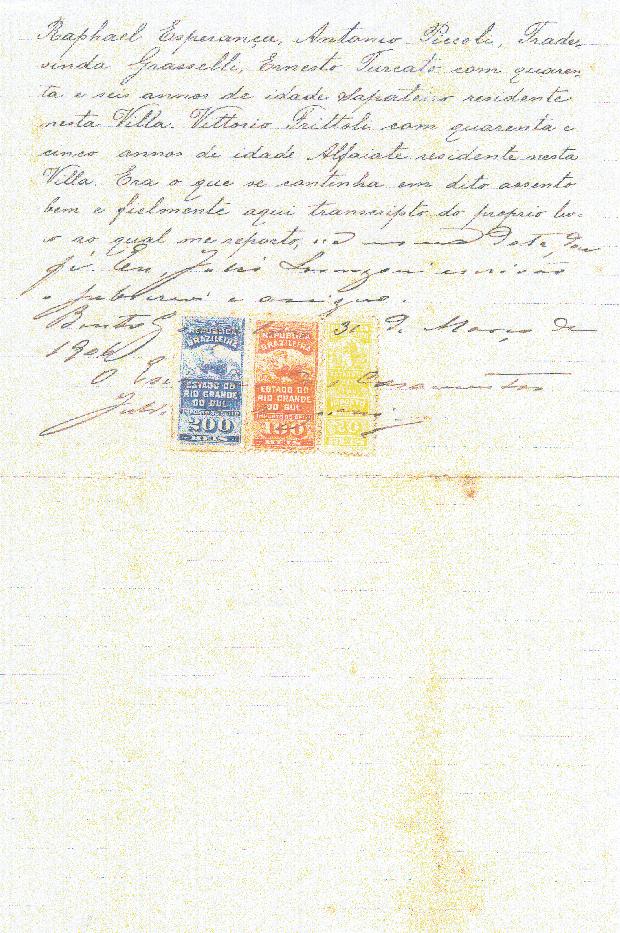 Raphael Esperança, Antonio Piccoli, Trade-
sinda Grasselli, Ernesto Turcato com quaren-
ta e seis annos de idade Sapateiro residente
nesta Villa. Vittorio Trittoli com quarenta e
cinco annos de idade Alfaiate residente nesta
Villa. Era o que se continha em dito assento
bem e fielmente aqui transcripto do proprio li-
o ao qual me reporto, Dota, dou
fé. Eu, Julio Lorenzoni escrivão
e assigno.
Bento 31 de Março de
1906
O Casamentos
Julio
REPUBLICA
BRAZILEIRA
ESTADO DO
RIO GRANDE
DO SUL
200
REIS
REPUBLICA
BRAZILEIRA
ESTADO DO
RIO GRANDE
DO SUL
100
REIS